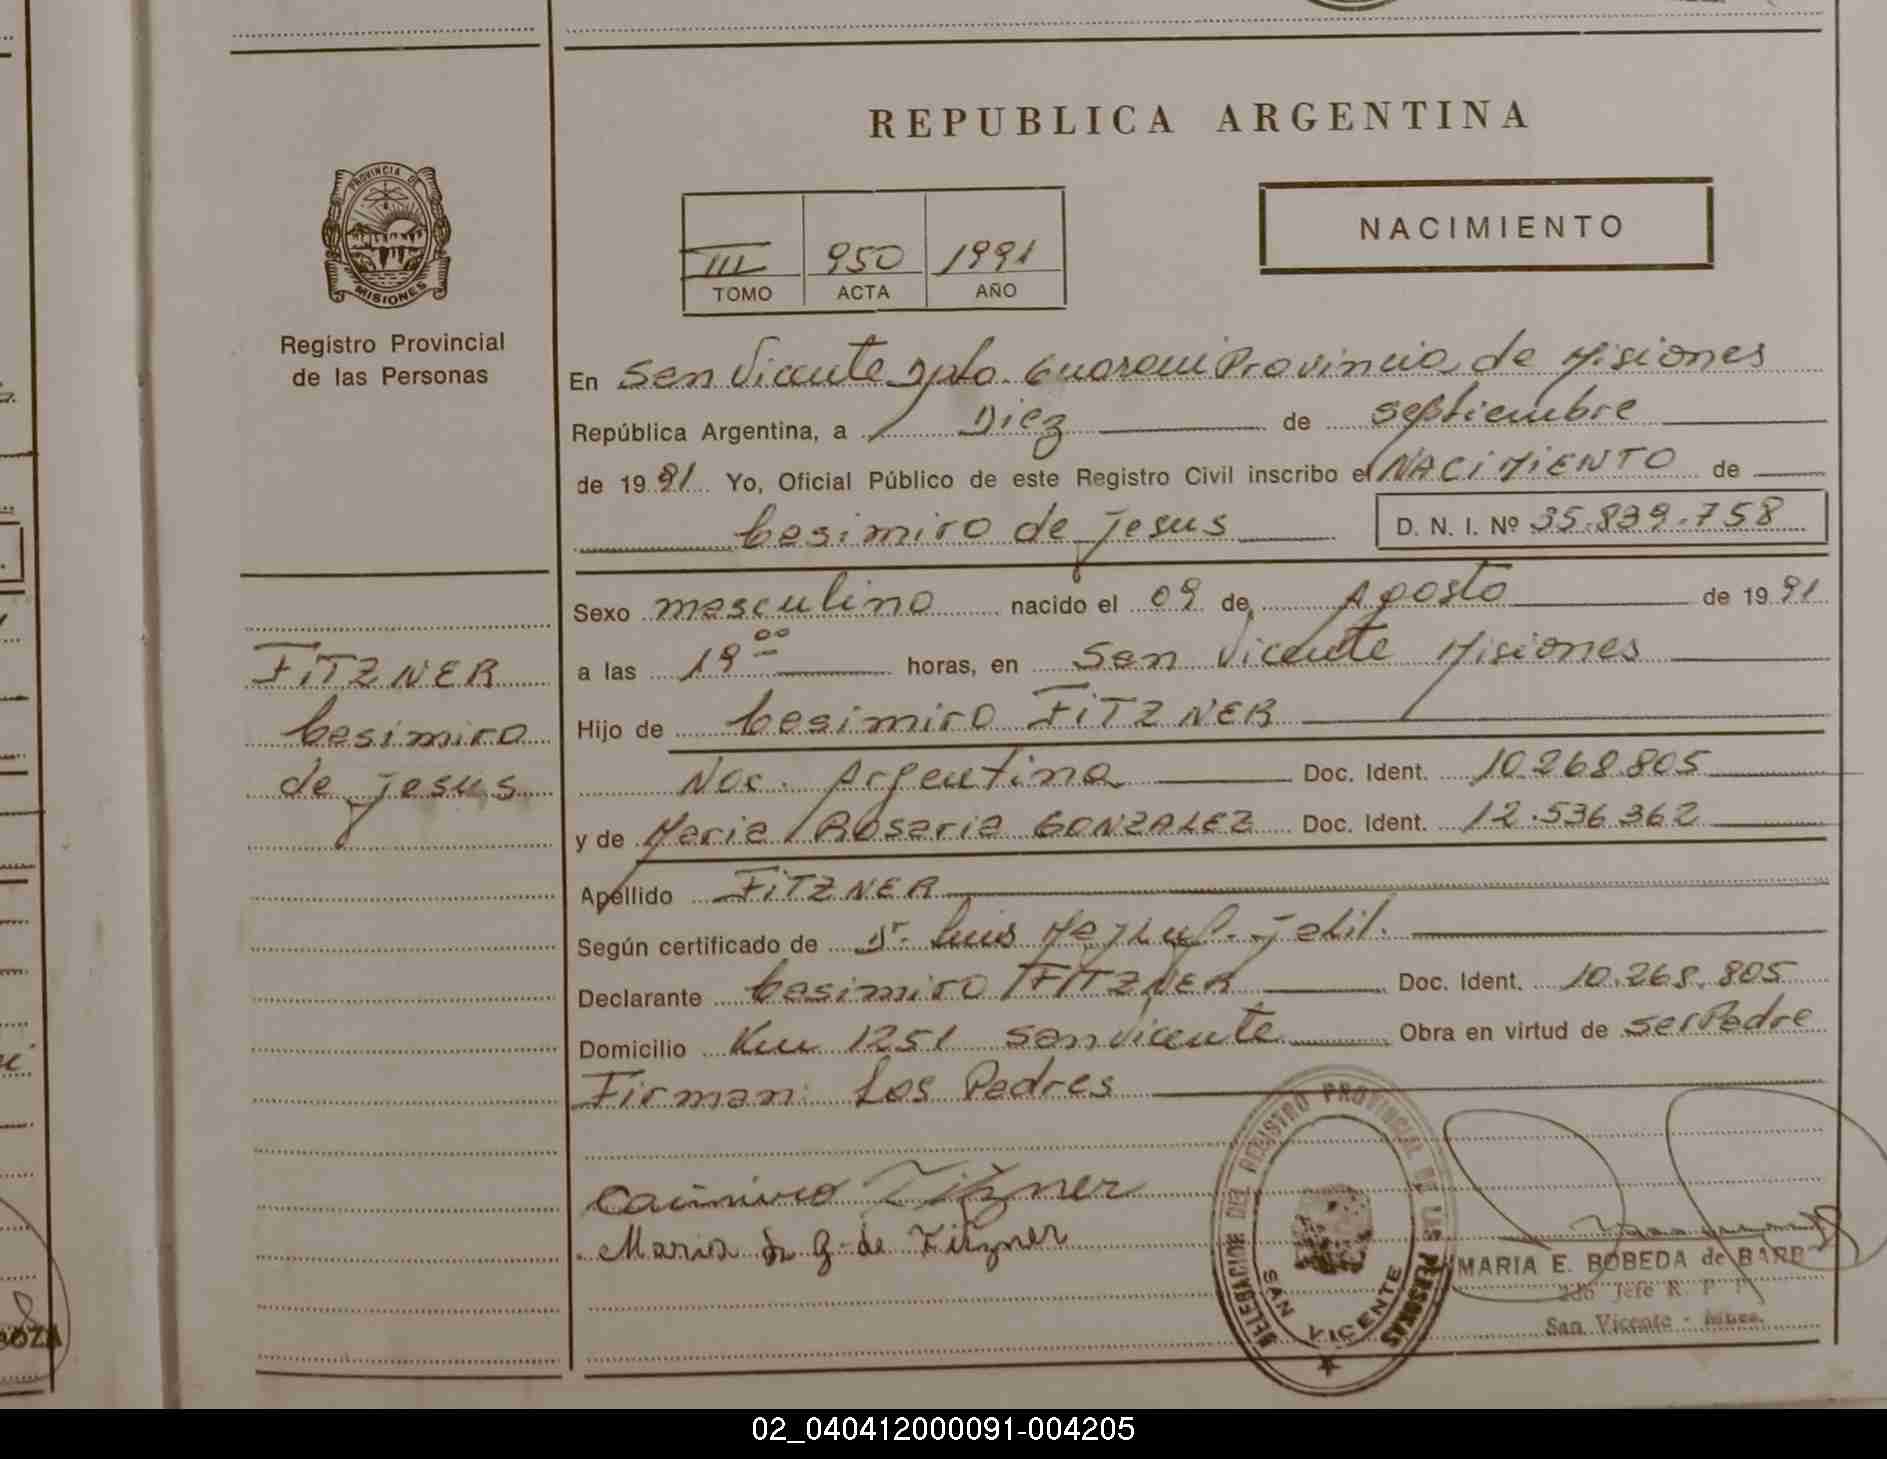 REPUBLICA ARGENTINA
PROVINCIA DE
MISIONES
Registro Provincial
de las Personas
NACIMIENTO
III 950 1991
TOMO ACTA AÑO
En San Vicente Dpto. Guarani Provincia de Misiones
República Argentina, a Diez de septiembre
de 1991 Yo, Oficial Público de este Registro Civil inscribo el NACIMIENTO de
Casimiro de Jesus D. N. I. Nº 35.839.758
Sexo masculino nacido el 09 de Agosto de 1991
a las 19 00 horas, en San Vicente Misiones
Hijo de Casimiro FITZNER
Nac. Argentina Doc. Ident. 10.268.805
y de Maria Rosaria GONZALEZ Doc. Ident. 12.536.362
Apellido FITZNER
Según certificado de Dr. Luis
Declarante Casimiro FITZNER Doc. Ident. 10.268.805
Domicilio Km 1251 San Vicente Obra en virtud de ser Padre
Firman: Los Padres
FITZNER
Casimiro
de Jesus
Casimiro Fitzner
Maria G. de Fitzner
DELEGACION DEL REGISTRO PROVINCIAL DE LAS PERSONAS
SAN VICENTE
MARIA E. BOBEDA de BARR
2do Jefe R. P. P.
San Vicente - Mnes.
02_040412000091-004205